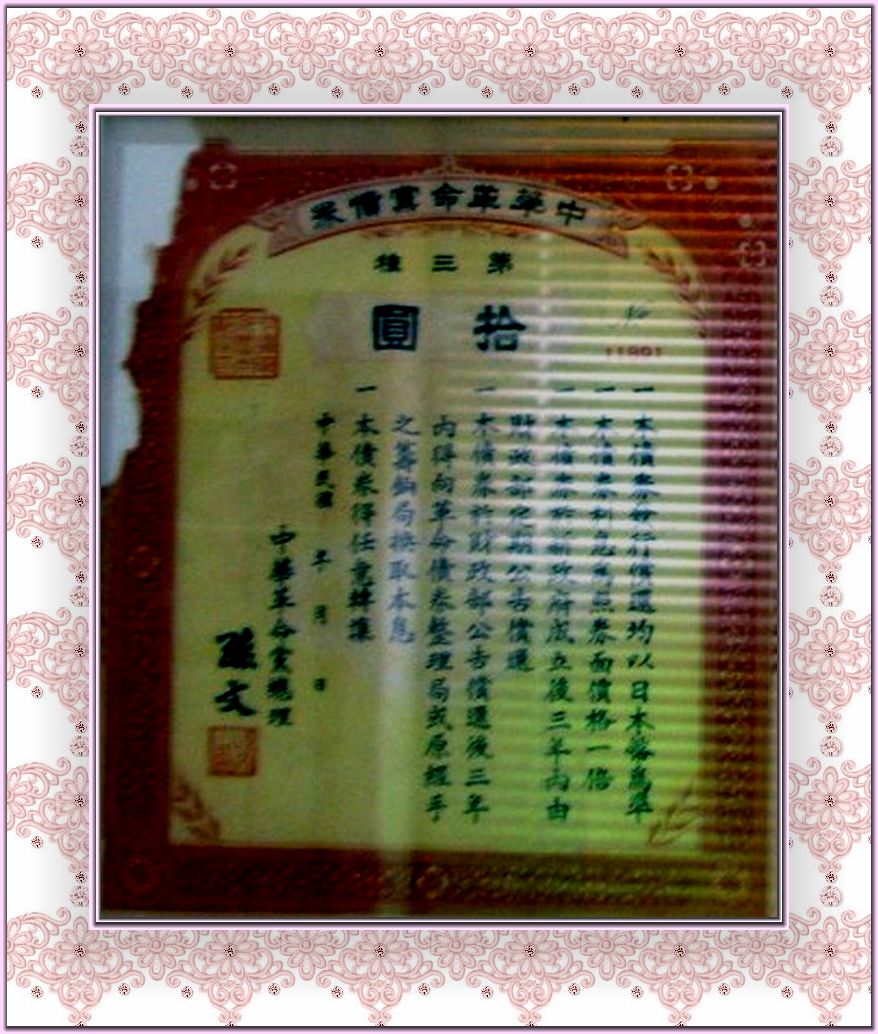 中華革命黨債券
第三種
拾圓
11991
一本債券發行償還均以日本幣為準
一本債券利息為照券面價格一倍
一本債券於新政府成立後三年內由
財政部定期公告償還
一本債券於財政部公告償還後三年
內得向革命債券整理局或原經手
之籌餉局換取本息
一本債券得任意轉讓
中華民國 年 月 日
中華革命黨總理
孫文